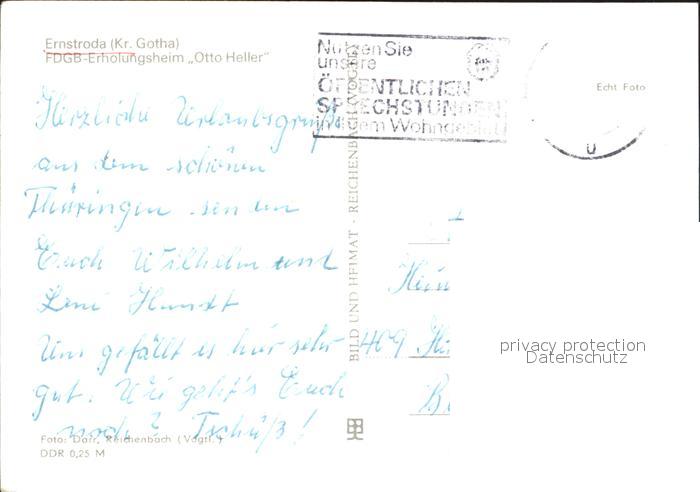 Ernstroda (Kr. Gotha)
FDGB-Erholungsheim „Otto Heller"
Nutzen Sie
unsere
ÖFFENTLICHEN
SPRECHSTUNDEN
in Ihrem Wohngebiet
Echt Foto
u
Herzliche Urlaubsgrüße
aus dem schönen
Thüringen senden
Euch Wilhelm und
Leni
Uns gefällt es hier sehr
gut. Wie geht's Euch
noch? Tschüß!
BILD UND HEIMAT · REICHENBACH (VOGTL)
409
privacy protection
Datenschutz
Foto: Darr, Reichenbach (Vogtl.)
DDR 0,25 M